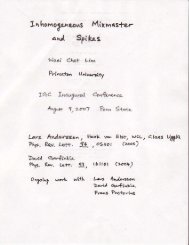 Inhomogeneous Mixmaster
and Spikes
Woei Chet Lim
Princeton University
IGC Inaugural Conference
August 9, 2007 Penn State
Lars Andersson, Henk van Elst, WCL, Claes Uggla
Phys. Rev. Lett. 94, 051101 (2005)
David Garfinkle
Phys. Rev. Lett. 93, 161101 (2004)
Ongoing work with Lars Andersson
David Garfinkle
Frans Pretorius